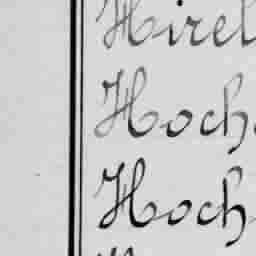 Hirel
Hoch
Hoch